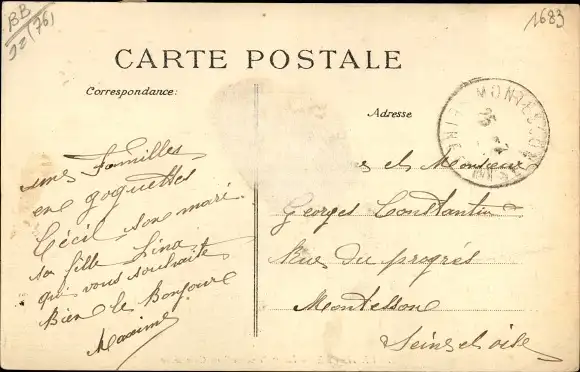 BB
92 (76)
1683
CARTE POSTALE
Correspondance:
Adresse
MONTESSON
unes Familles
en goguettes
Cécil son mari
sa fille Lina
qui vous souhaite
Bien le Bonjour
Maxime
es et Monsieur
Georges Constantin
Rue du progrés
Montesson
Seine et oise